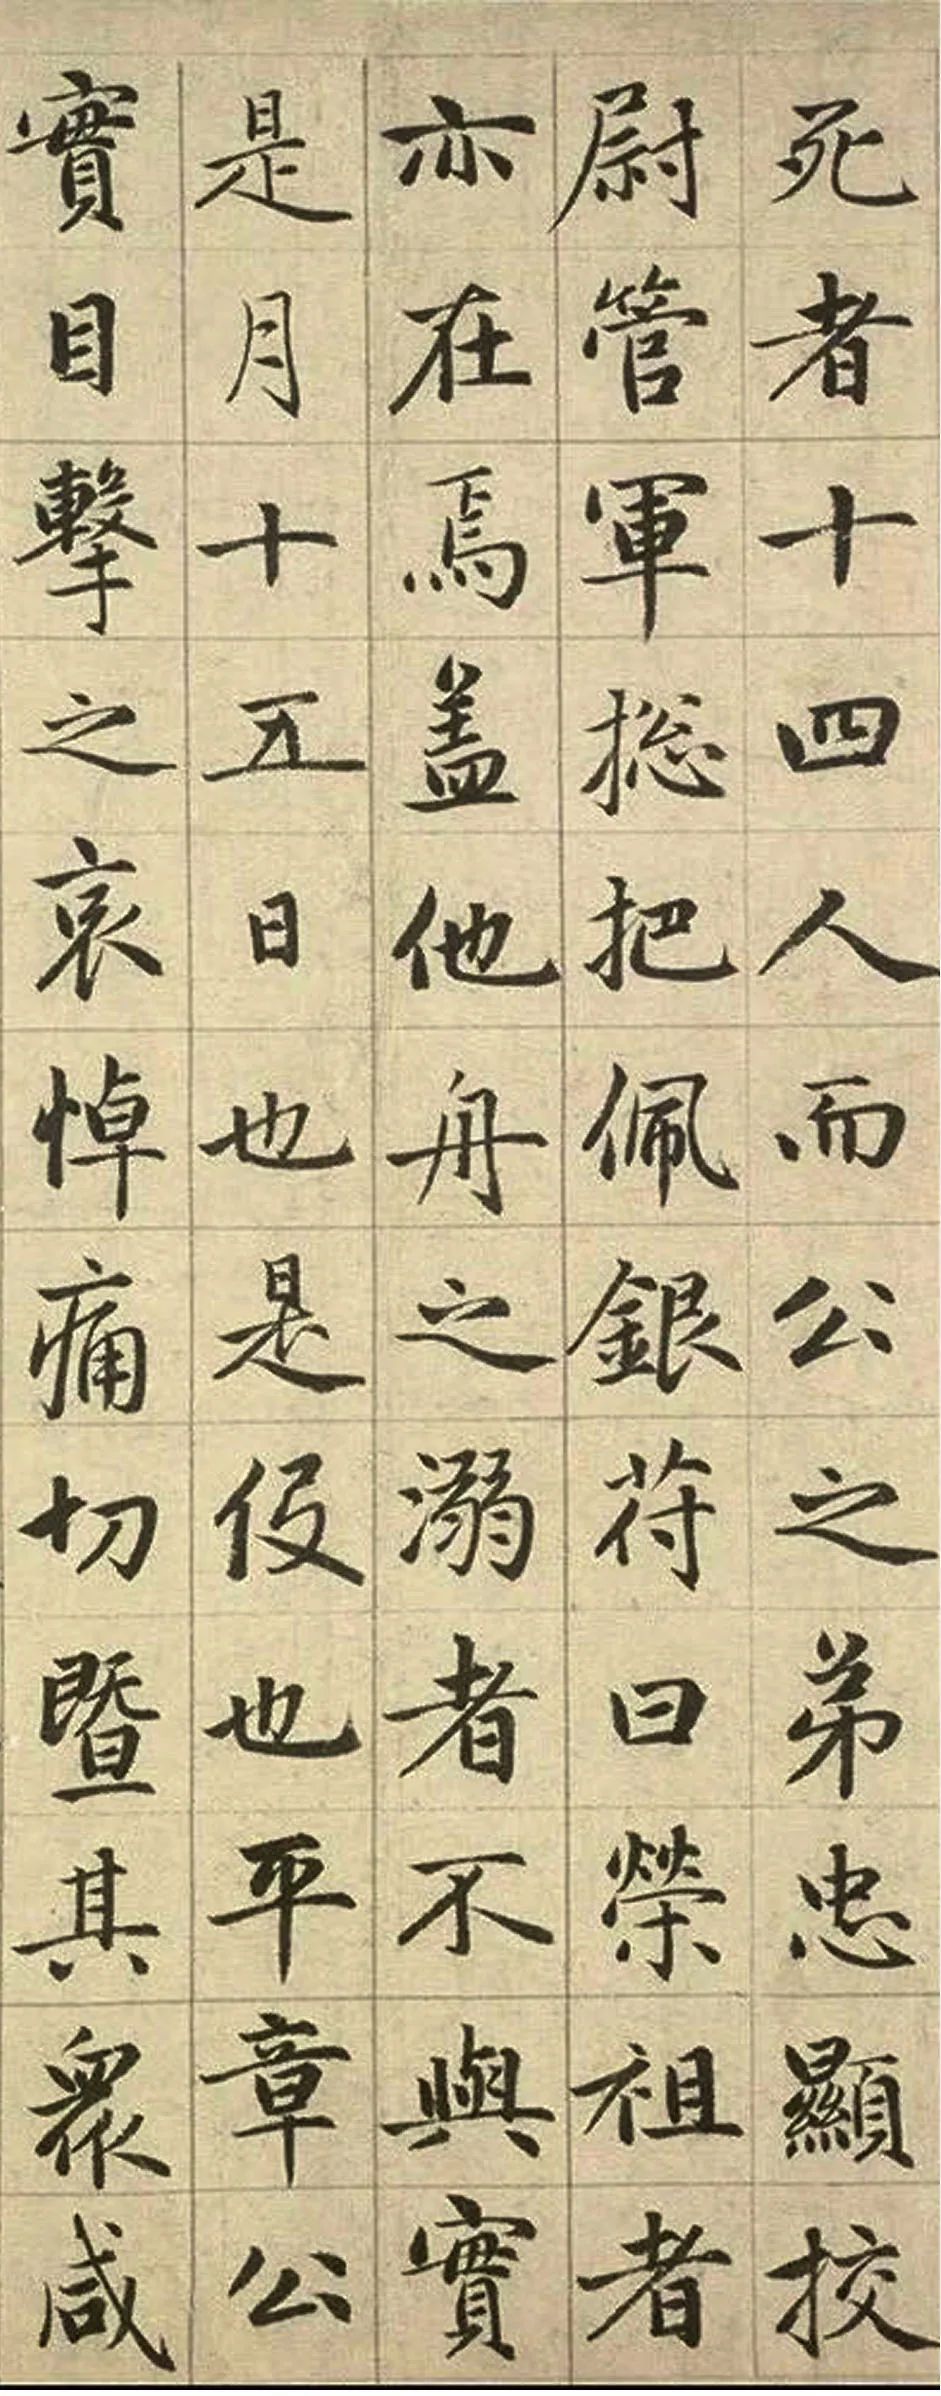 死者十四人而公之弟忠顯挍
尉管軍揔把佩銀苻曰榮祖者
亦在焉盖他舟之溺者不與實
是月十五日也是役也平章公
實目擊之哀悼痛切暨其衆咸